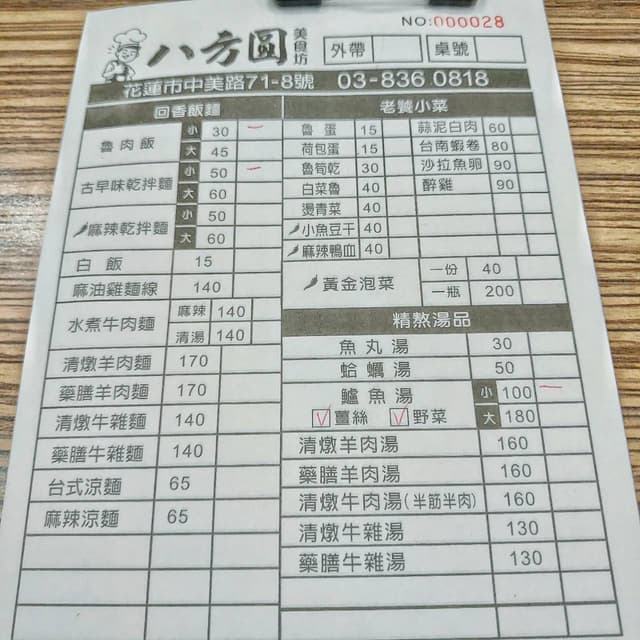 NO:000028
八方圓 美食坊 外帶 桌號
花蓮市中美路71-8號 03-836 0818
回香飯麵
魯肉飯 小 30
大 45
古早味乾拌麵 小 50
大 60
麻辣乾拌麵 小 50
大 60
白飯 15
麻油雞麵線 140
水煮牛肉麵 麻辣 140
清湯 140
清燉羊肉麵 170
藥膳羊肉麵 170
清燉牛雜麵 140
藥膳牛雜麵 140
台式涼麵 65
麻辣涼麵 65
老饕小菜
魯蛋 15 蒜泥白肉 60
荷包蛋 15 台南蝦卷 80
魯筍乾 30 沙拉魚卵 90
白菜魯 40 醉雞 90
燙青菜 40
小魚豆干 40
麻辣鴨血 40
黃金泡菜 一份 40
一瓶 200
精熬湯品
魚丸湯 30
蛤蠣湯 50
鱸魚湯 小 100
薑絲 野菜 大 180
清燉羊肉湯 160
藥膳羊肉湯 160
清燉牛肉湯(半筋半肉) 160
清燉牛雜湯 130
藥膳牛雜湯 130